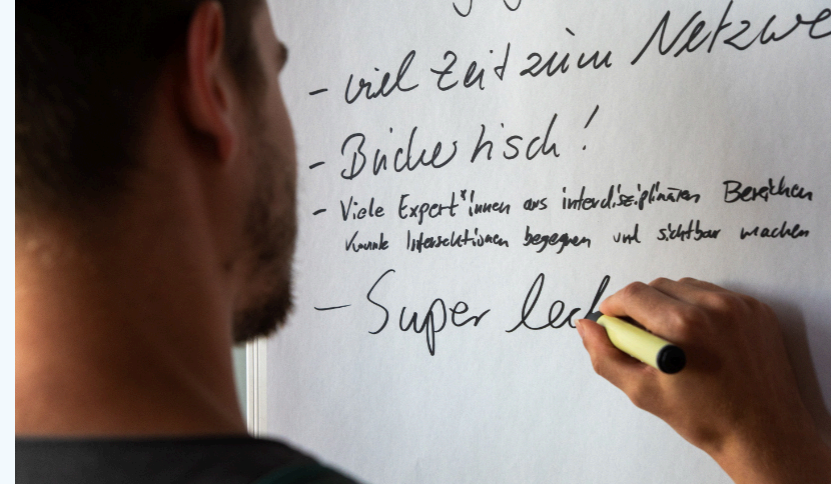 - viel Zeit zum Netzwe
- Büchertisch!
- Viele Expert*innen aus interdisziplinären Bereichen
Intersektionen begegnen und sichtbar machen
- Super lec